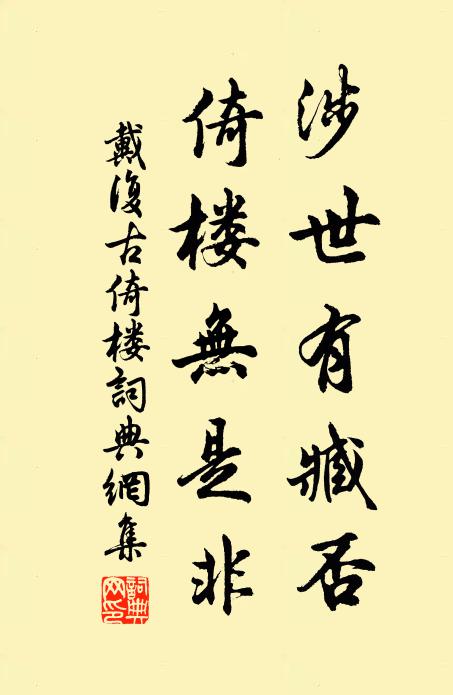 涉世有臧否
倚楼無是非
戴復古倚楼詞典網集
詞典網印